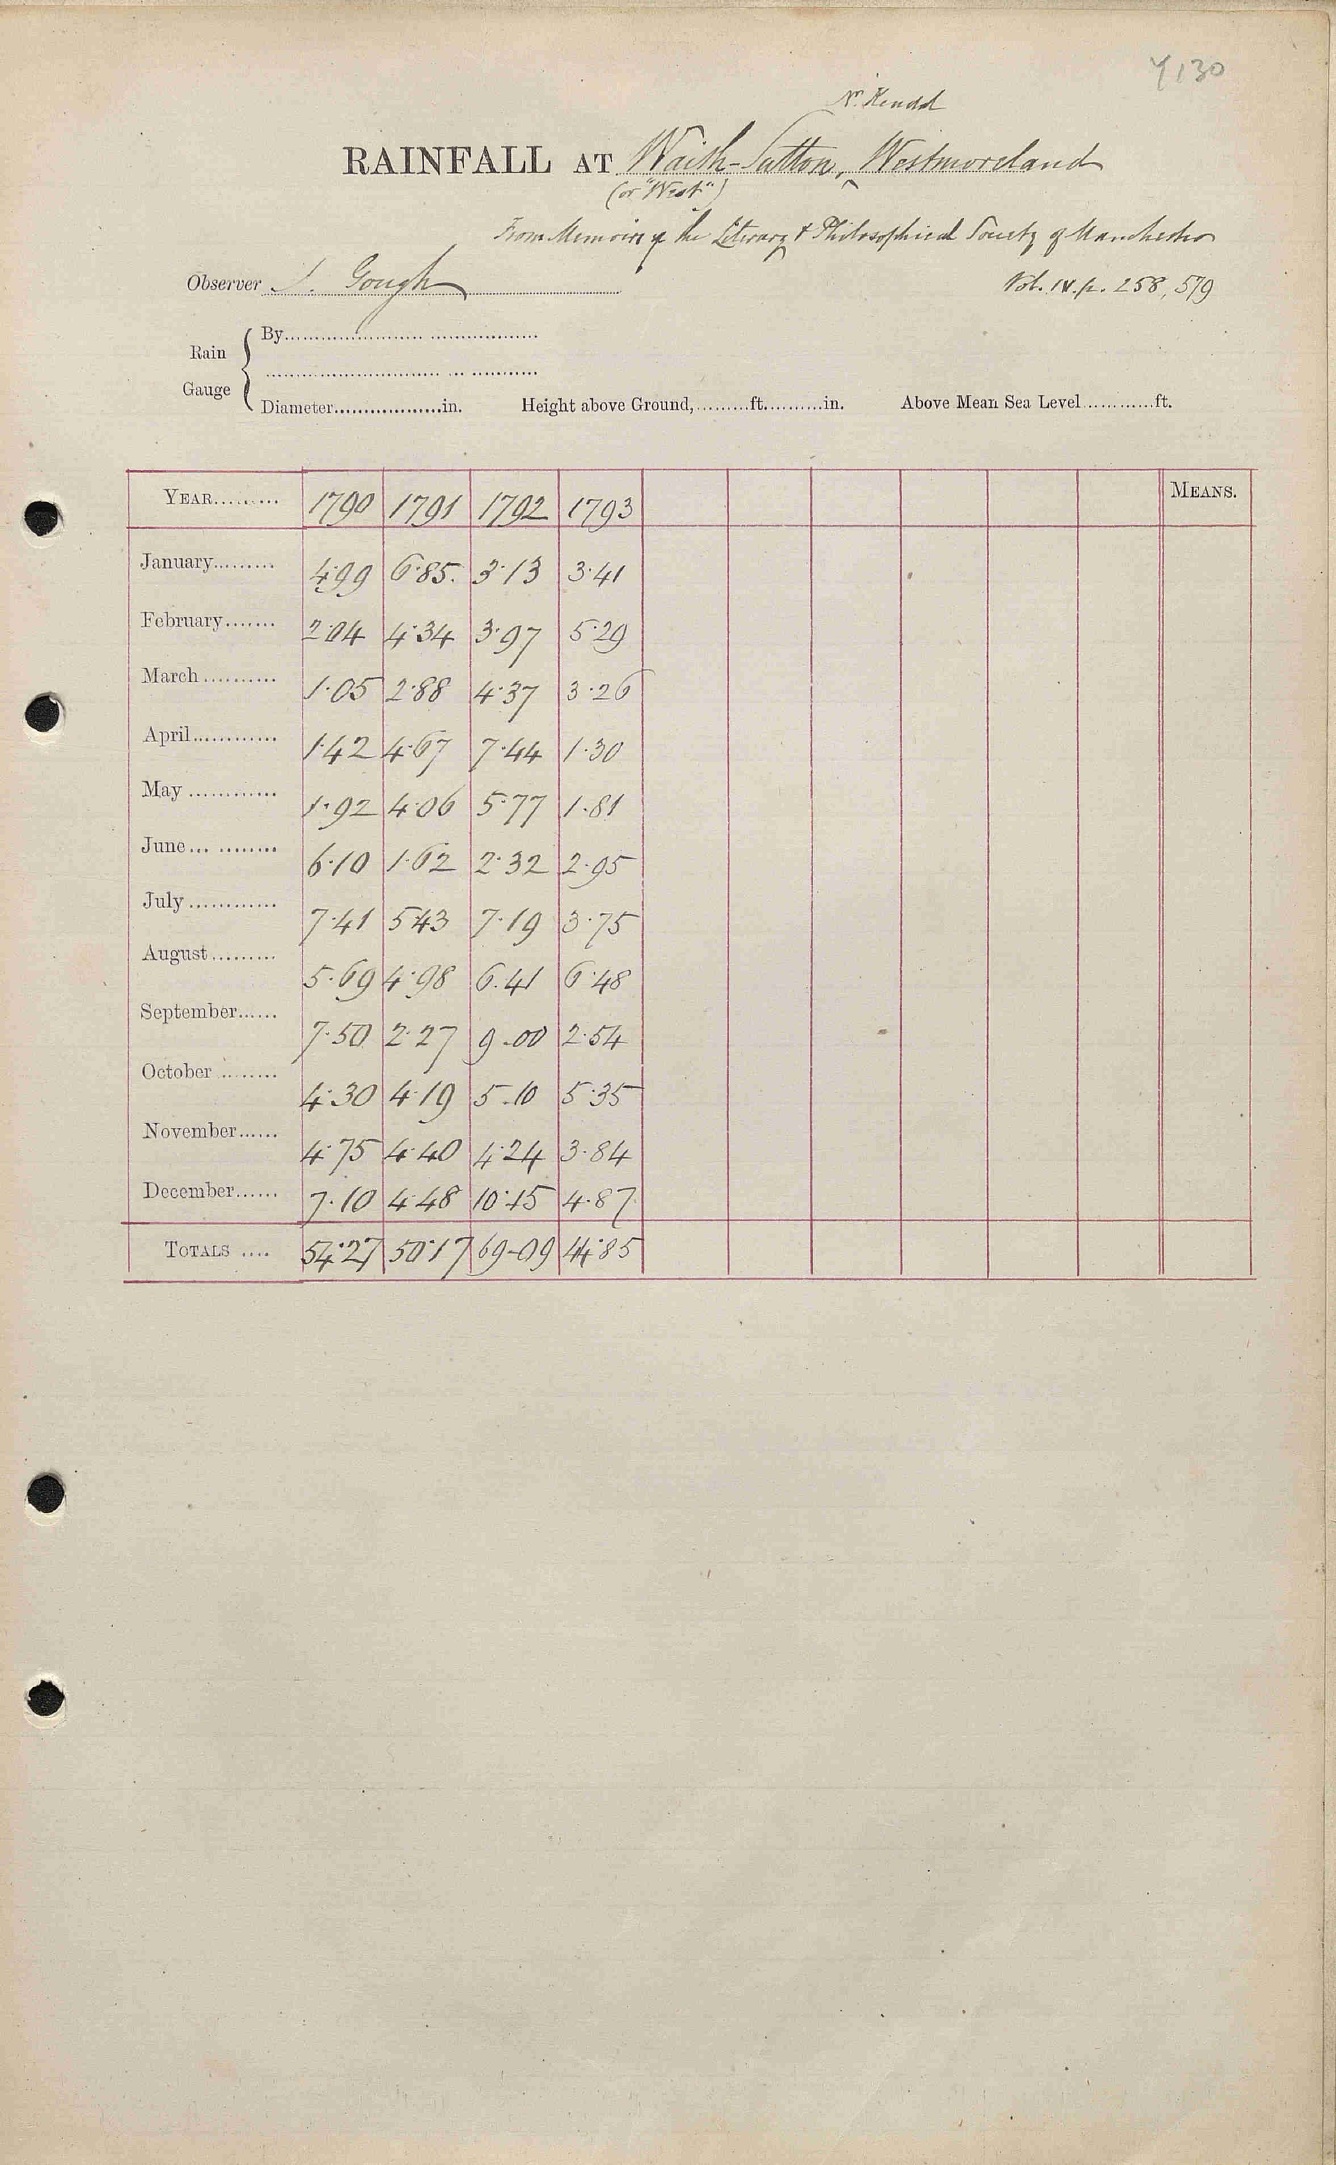 4130
Nr. Kendal
RAINFALL AT Waith-Sutton, Westmoreland
(or "West")
From Memoirs of the Literary & Philosophical Society of Manchester
Observer J. Gough
Vol. IV. p. 258, 579
By
Rain
Gauge
Diameter in. Height above Ground, ft. in. Above Mean Sea Level ft.
YEAR 1790 1791 1792 1793 MEANS.
January 4.99 6.85 3.13 3.41
February 2.04 4.34 3.97 5.29
March 1.05 2.88 4.37 3.26
April 1.42 4.67 7.44 1.30
May 1.92 4.06 5.77 1.81
June 6.10 1.62 2.32 2.95
July 7.41 5.43 7.19 3.75
August 5.69 4.98 6.41 6.48
September 7.50 2.27 9.00 2.54
October 4.30 4.19 5.10 5.35
November 4.75 4.40 4.24 3.84
December 7.10 4.48 10.15 4.87
TOTALS 54.27 50.17 69.09 44.85